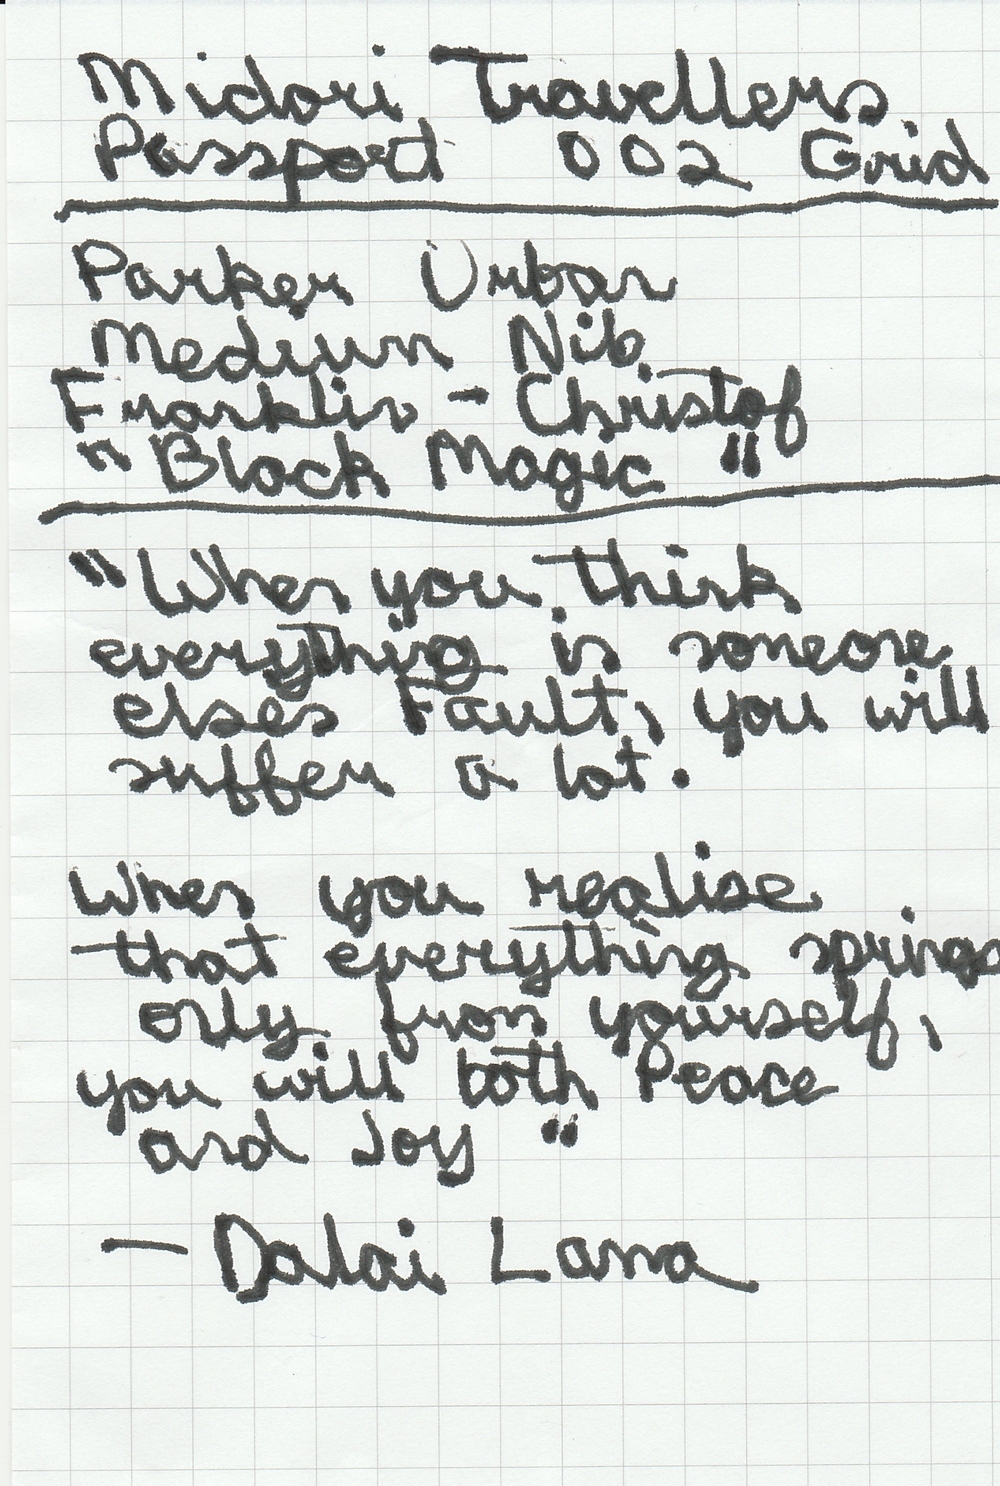 Midori Travellers
Passport 002 Grid
Parker Urban
Medium Nib
Franklin - Christof
"Black Magic"
"When you think
everything is someone
elses Fault, you will
suffer a lot.
When you realise
that everything springs
only from yourself,
you will both Peace
and Joy"
— Dalai Lama